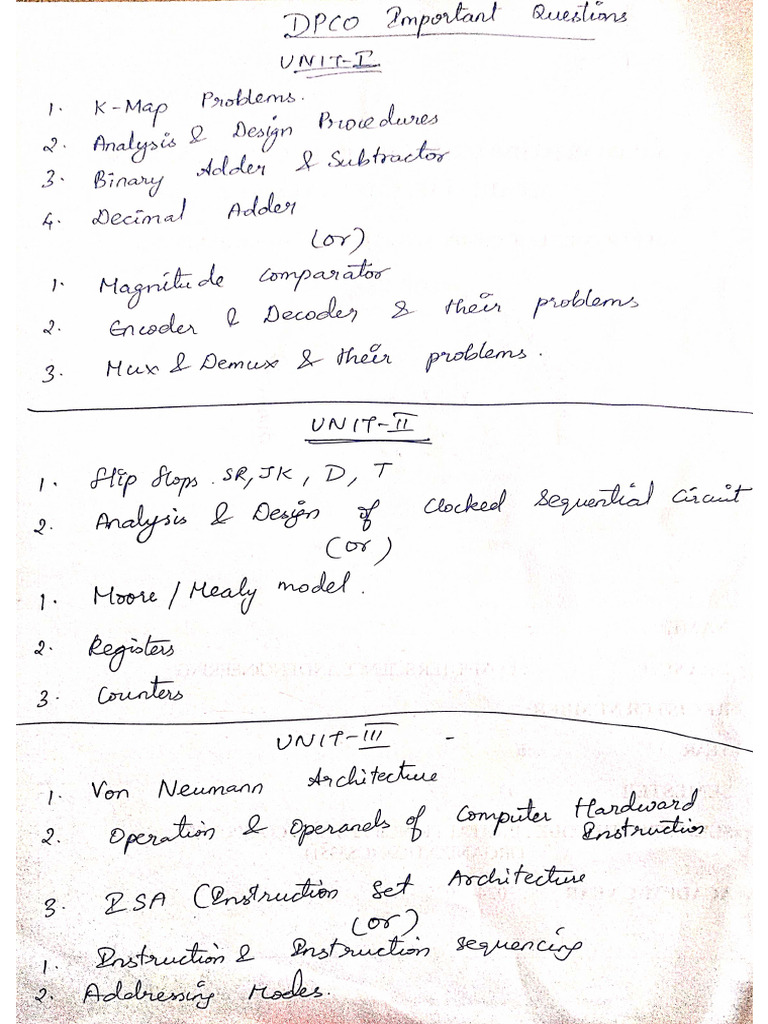 DPCO Important Questions
UNIT-I
1. K-Map Problems.
2. Analysis & Design Procedures
3. Binary Adder & Subtractor
4. Decimal Adder
(or)
1. Magnitude Comparator
2. Encoder & Decoder & their problems
3. Mux & Demux & their problems.
UNIT-II
1. Flip flops. SR, JK, D, T
2. Analysis & Design of Clocked Sequential Circuit
(or)
1. Moore / Mealy model.
2. Registers
3. Counters
UNIT-III -
1. Von Neumann Architecture
2. Operation & Operands of Computer Hardward
Instruction
3. ISA (Instruction Set Architecture
(or)
1. Instruction & Instruction sequencing
2. Addressing Modes.